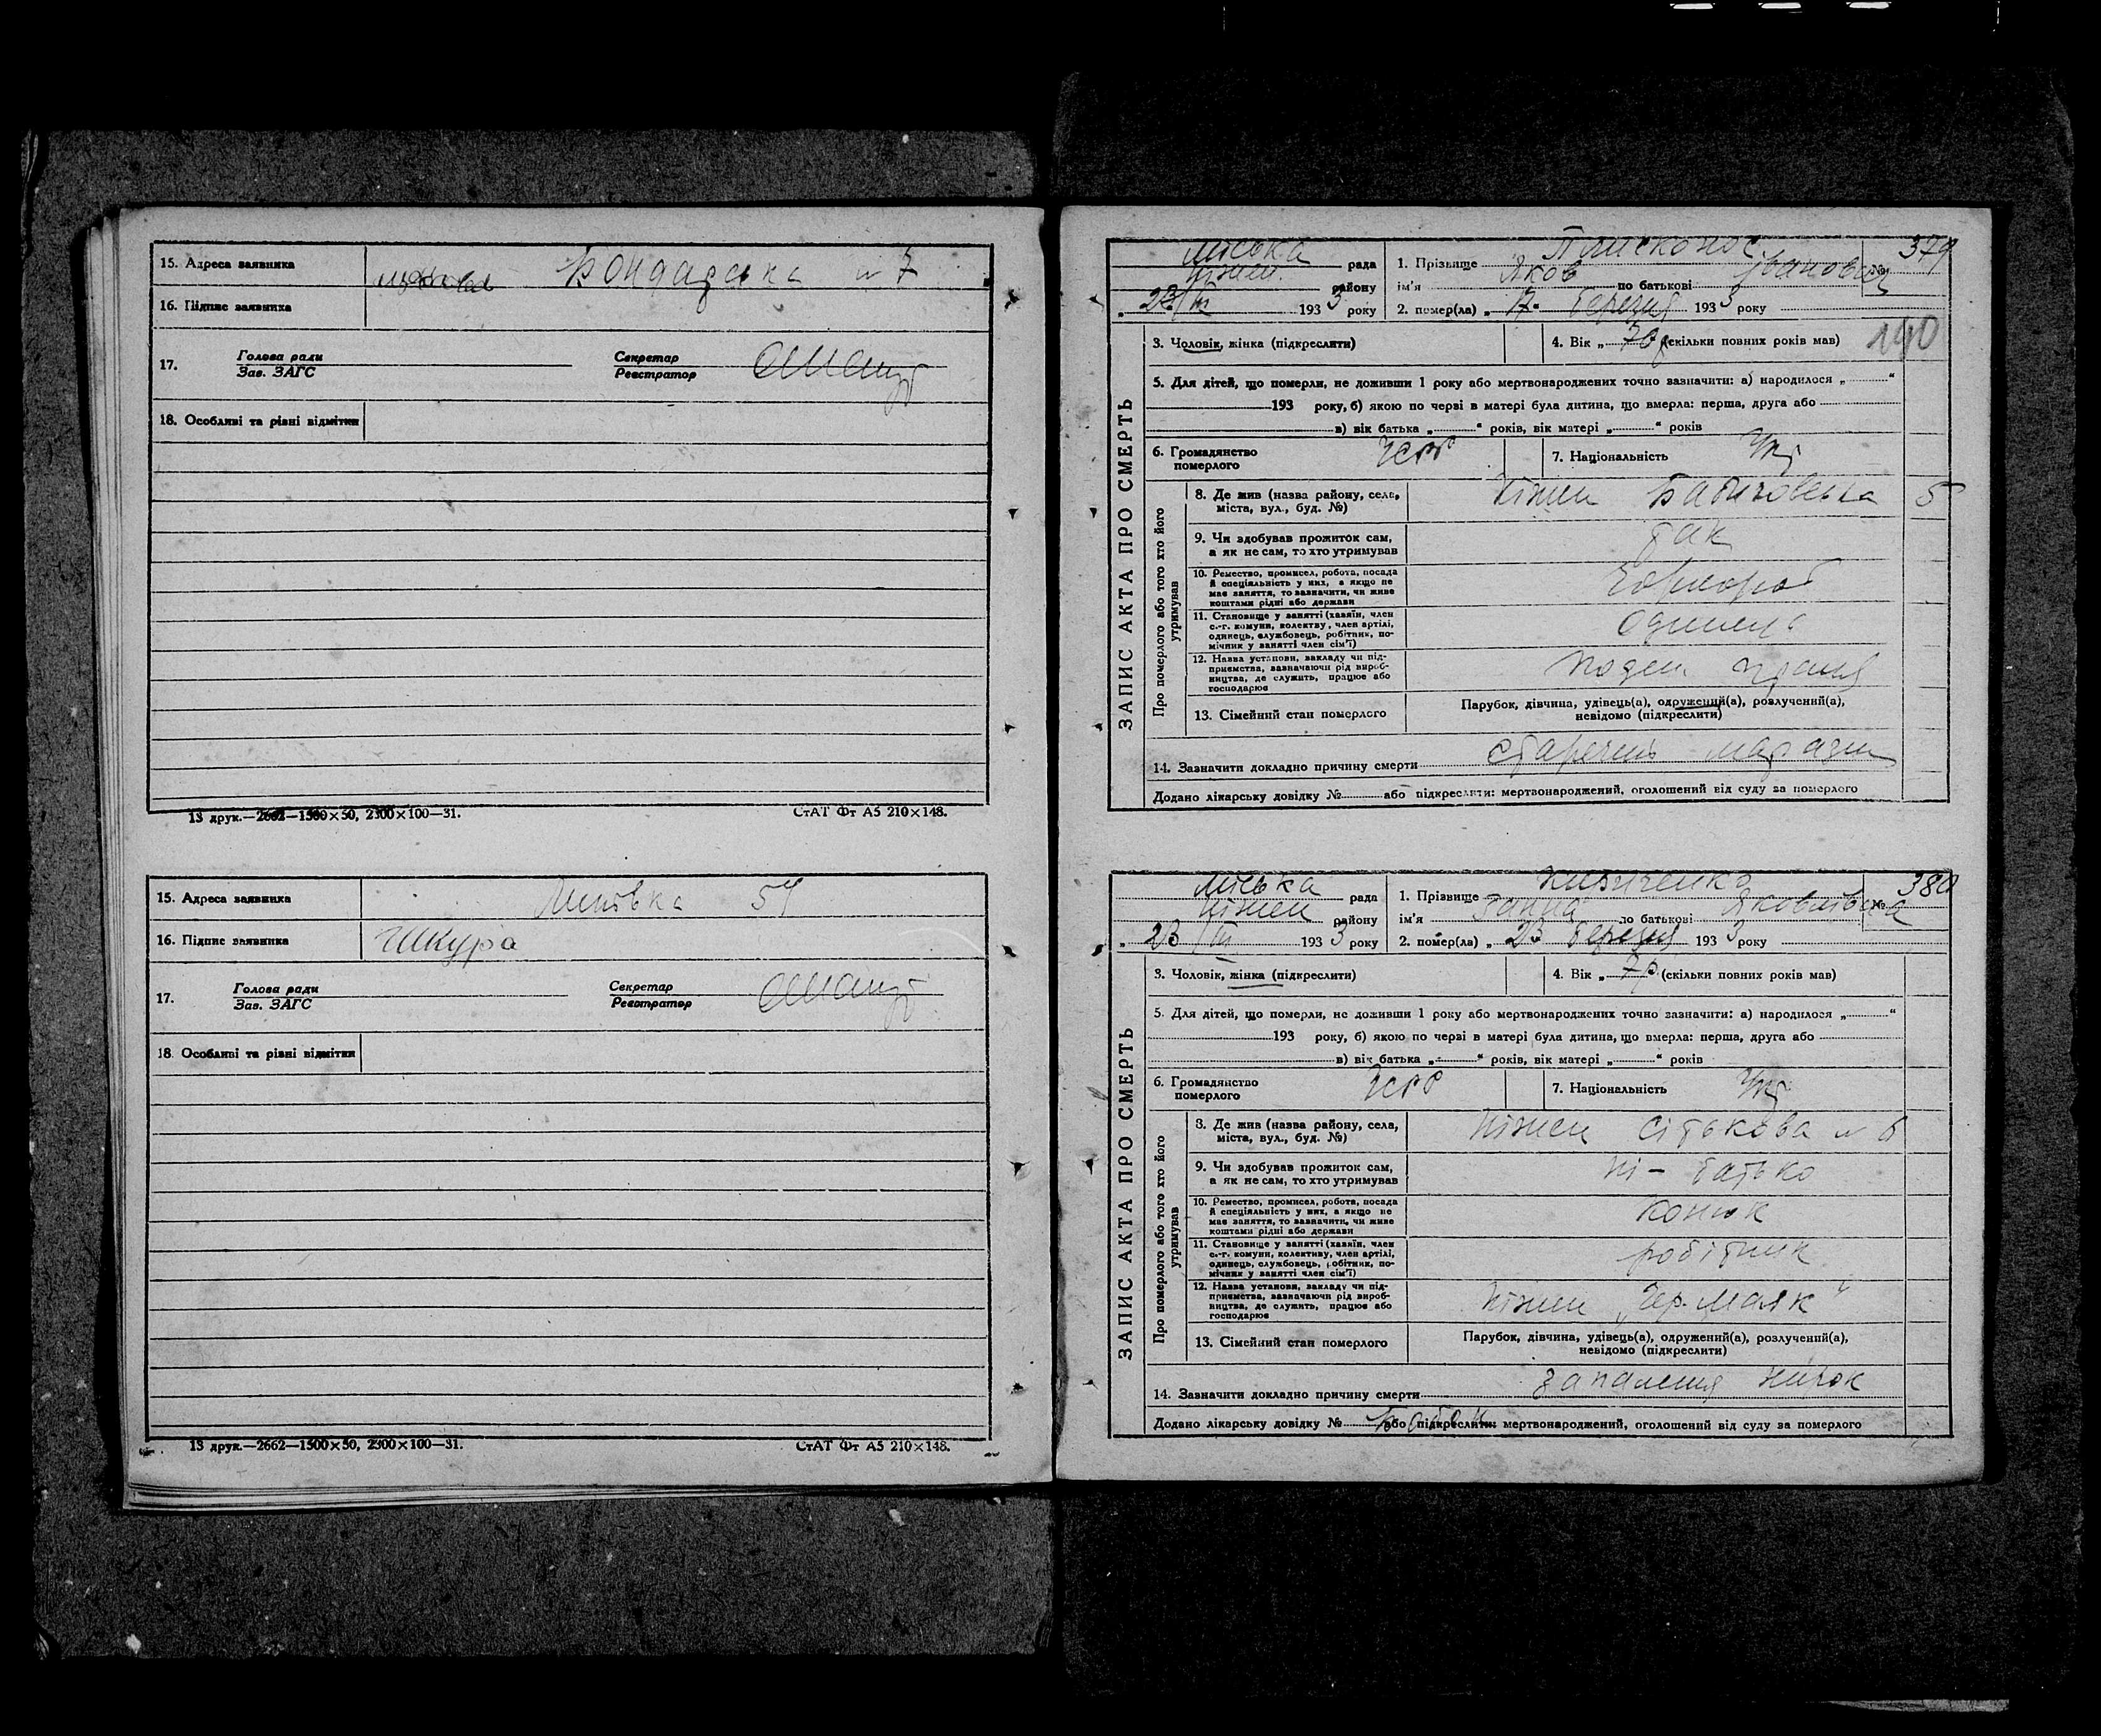 15. Адреса заявника Бондарська № 7
16. Підпис заявника
17. Голова ради
Зав. ЗАГС
Секретар
Реєстратор
18. Особливі та різні відмітки
13 друк.—2662—1500×50, 2300×100—31. СтАТ Фт А5 210×148.
15. Адреса заявника 54
16. Підпис заявника Шкура
17. Голова ради
Зав. ЗАГС
Секретар
Реєстратор
18. Особливі та різні відмітки
13 друк.—2662—1500×50, 2300×100—31. СтАТ Фт А5 210×148.
ЗАПИС АКТА ПРО СМЕРТЬ
Міська рада
Ніжен району
„ 23/III 1933 року
1. Прізвище Плисконос 379
ім'я Яков по батькові Іванович №
2. помер(ла) „ 17 “ березня 1933 року
3. Чоловік, жінка (підкреслити)
4. Вік „ 70 р (скільки повних років мав)
190
5. Для дітей, що померли, не доживши 1 року або мертвонароджених точно зазначити: а) народилося „ “
193 року, б) якою по черзі в матері була дитина, що вмерла: перша, друга або
в) вік батька „ “ років, вік матері „ “ років
6. Громадянство померлого УСРР
7. Національність Укр
Про померлого або того хто його утримував
8. Де жив (назва району, села, міста, вул., буд. №) Ніжен 5
9. Чи здобував прожиток сам, а як не сам, то хто утримував так
10. Ремество, промисел, робота, посада й спеціяльність у них, а якщо не має заняття, то зазначити, чи живе коштами рідні або держави Чорнороб
11. Становище у занятті (хазяїн, член с.-г. комуни, колективу, член артілі, одинець, службовець, робітник, помічник у занятті член сім'ї) Одинець
12. Назва установи, закладу чи підприємства, зазначаючи рід виробництва, де служить, працює або господарює поден праця
13. Сімейний стан померлого Парубок, дівчина, удівець(а), одружений(а), розлучений(а), невідомо (підкреслити)
14. Зазначити докладно причину смерти старечий маразм
Додано лікарську довідку № або підкреслити: мертвонароджений, оголошений від суду за померлого
ЗАПИС АКТА ПРО СМЕРТЬ
Міська рада
Ніжен району
„ 23/III 1933 року
1. Прізвище 380
ім'я Ганна по батькові Яковлівна №
2. помер(ла) „ 23 березня 1933 року
3. Чоловік, жінка (підкреслити)
4. Вік „ 7 р. (скільки повних років мав)
5. Для дітей, що померли, не доживши 1 року або мертвонароджених точно зазначити: а) народилося „ “
193 року, б) якою по черзі в матері була дитина, що вмерла: перша, друга або
в) вік батька „ “ років, вік матері „ “ років
6. Громадянство померлого УСРР
7. Національність Укр
Про померлого або того хто його утримував
8. Де жив (назва району, села, міста, вул., буд. №) Ніжен Сітькова № 6
9. Чи здобував прожиток сам, а як не сам, то хто утримував ні — батько
10. Ремество, промисел, робота, посада й спеціяльність у них, а якщо не має заняття, то зазначити, чи живе коштами рідні або держави Конюх
11. Становище у занятті (хазяїн, член с.-г. комуни, колективу, член артілі, одинець, службовець, робітник, помічник у занятті член сім'ї) робітник
12. Назва установи, закладу чи підприємства, зазначаючи рід виробництва, де служить, працює або господарює Ніжен „Чер. Маяк“
13. Сімейний стан померлого Парубок, дівчина, удівець(а), одружений(а), розлучений(а), невідомо (підкреслити)
14. Зазначити докладно причину смерти запалення нирок
Додано лікарську довідку № або підкреслити: мертвонароджений, оголошений від суду за померлого